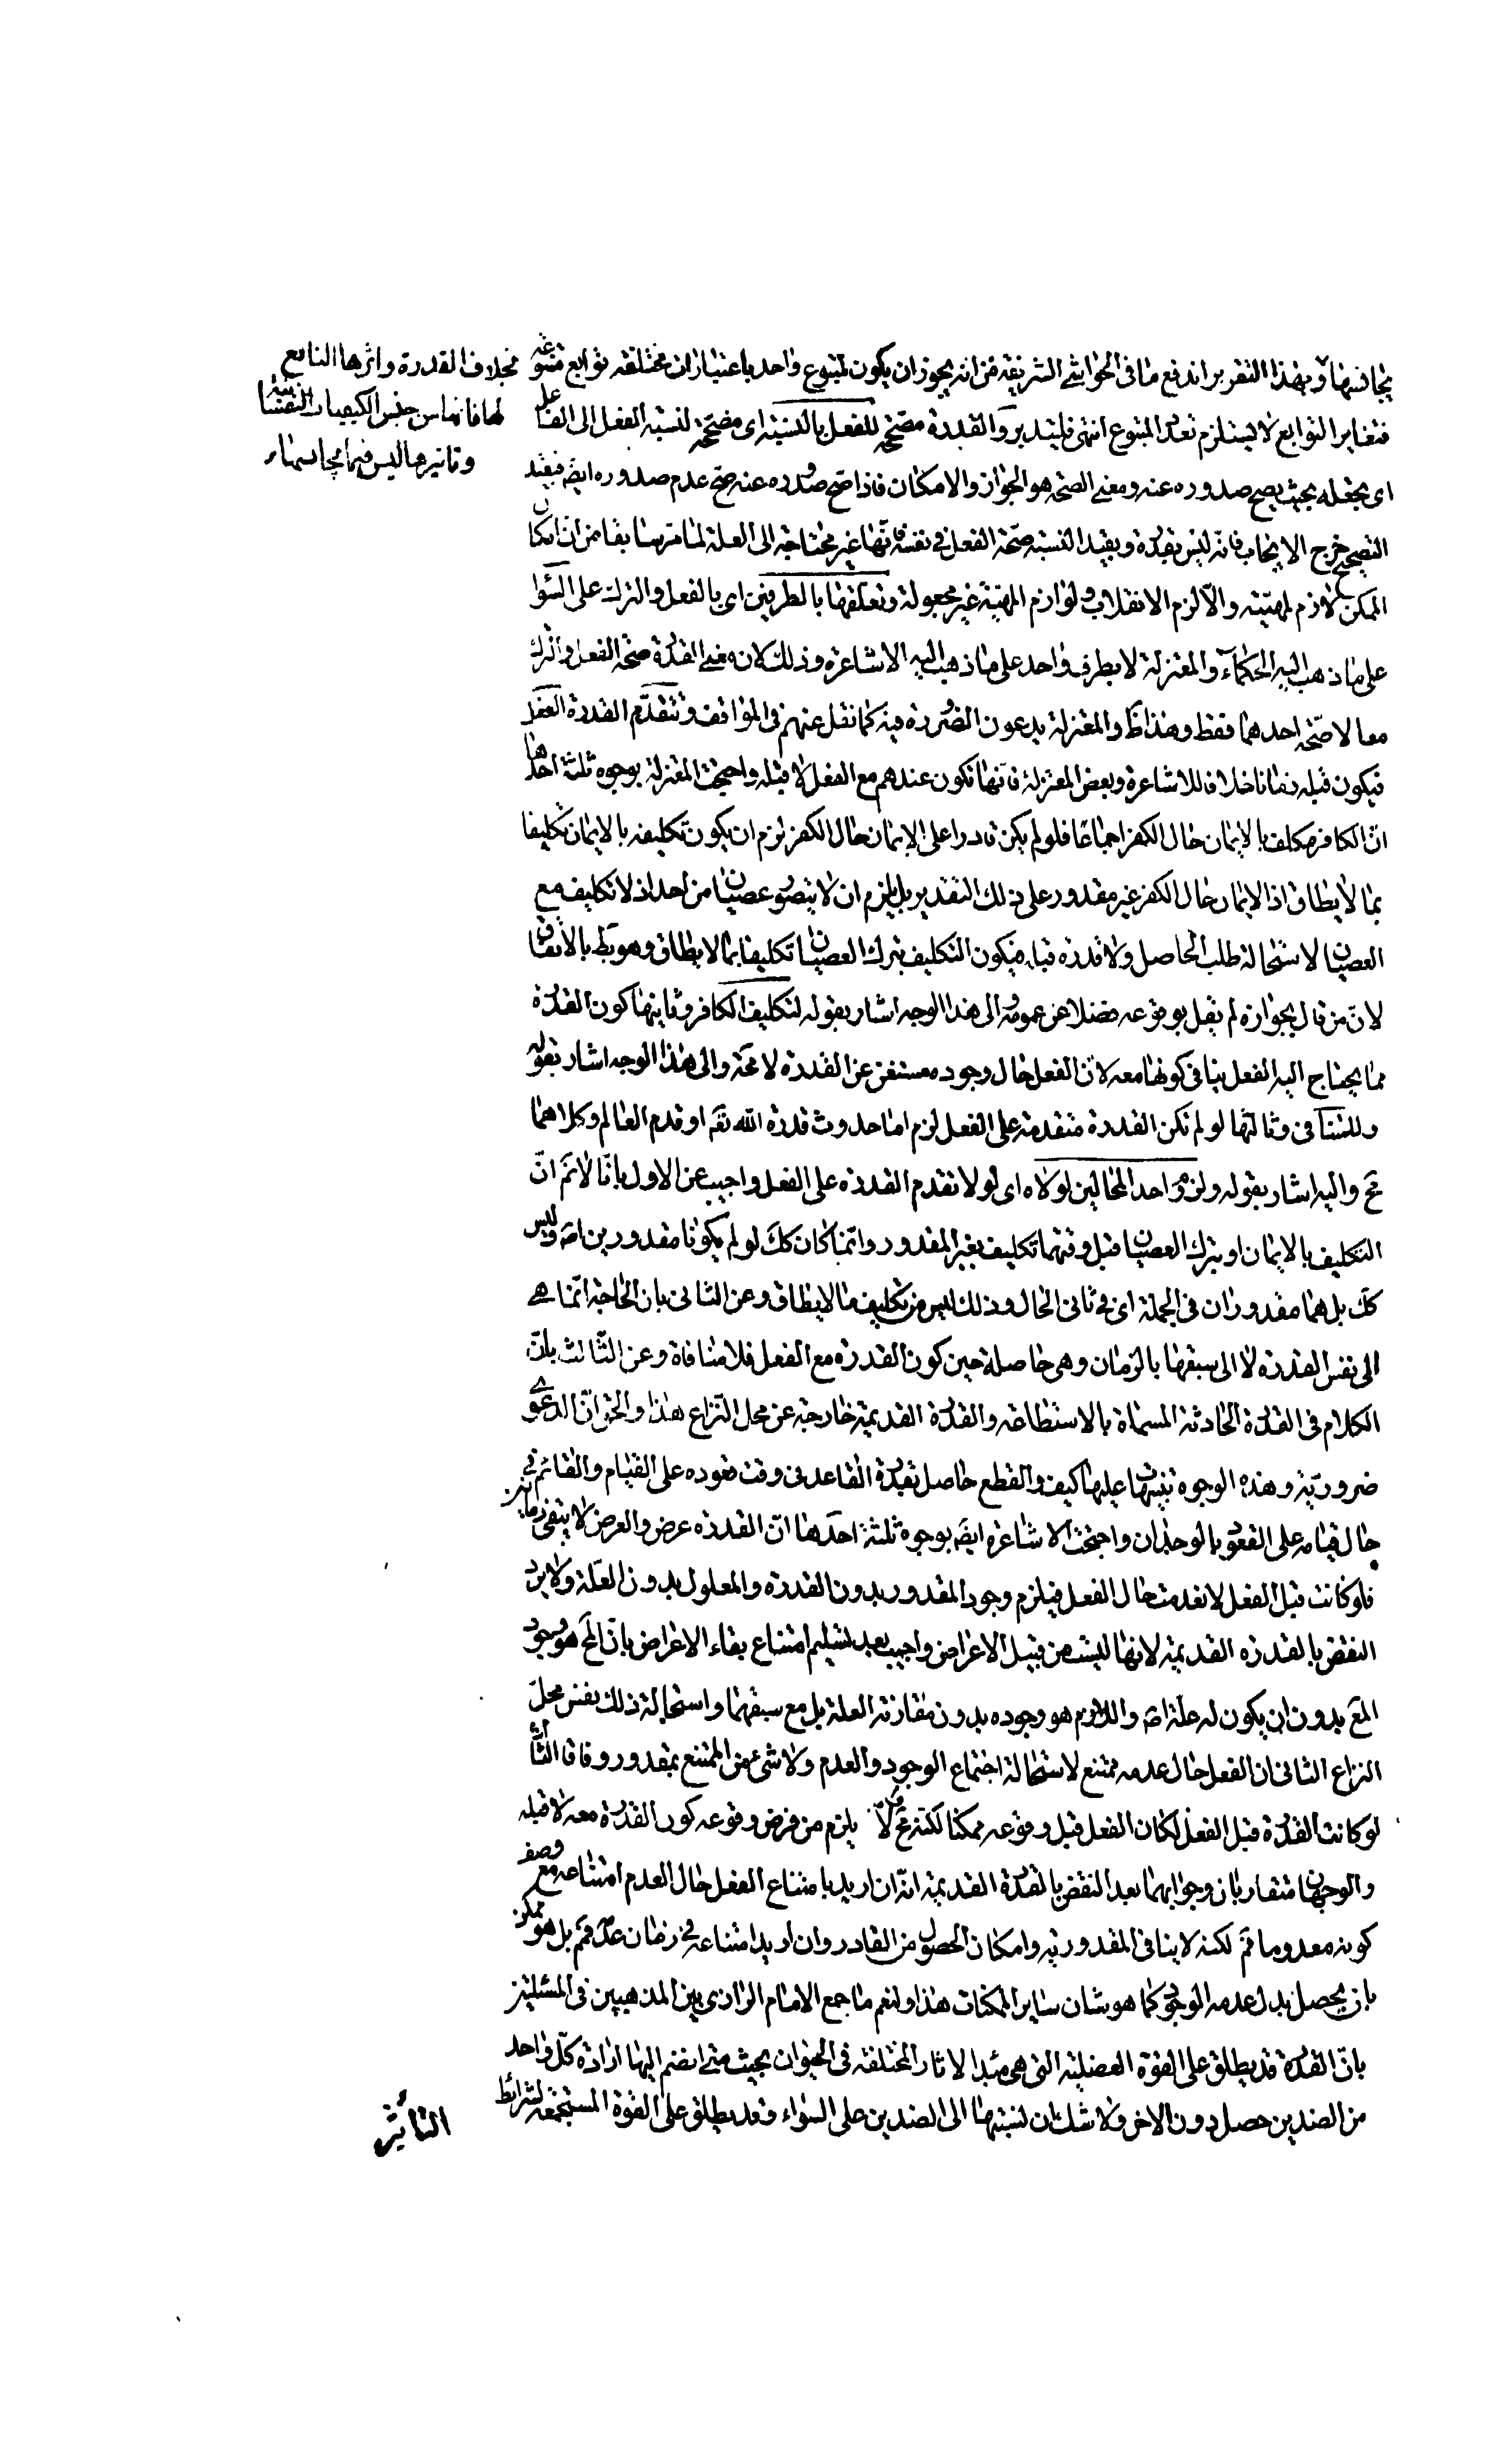 يجانسها و بهذا التقرير اندفع ما فى الحواشى الشريفة من انه يجوز ان يكون لمتبوع واحد باعتبارات مختلفه توابع متنوعة
فتغاير التوابع لا يستلزم تعدد المتبوع انتهى فليتدبر والقدرة مصححه للفعل بالنسبة اى مصححة لنسبة الفعل الى الفاعل
اى يجعله بحيث يصح صدوره عنه ومعنى الصحه هو الجواز والامكان فاذا صح صدوره عنه صح عدم صدوره ايض فبقيد
التصحيح خرج الايجاب فانه ليس بقدرة وبقيد النسبة صحة الفعل فى نفسه فانها غير محتاجة الى العلة لما مر سابقا من ان امكان
الممكن لازم لمهيته والا لزم الانقلاب ولوازم المهية غير مجعولة وتعلقها بالطرفين اى بالفعل والترك على السواء
على ما ذهب اليه الحكماء والمعتزلة لا بطرف واحد على ما ذهب اليه الاشاعره وذلك لان معنى القدرة صحة الفعل والترك
معا لا صحة احدهما فقط وهذا ظ والمعتزلة يدعون الضرورة فيه كما نقل عنهم فى المواقف وتتقدم القدرة الفعل
فيكون قبله زمانا خلافا للاشاعرة وبعض المعتزلة فانها تكون عندهم مع الفعل لا قبله واحتجت المعتزلة بوجوه ثلثة احدها
ان الكافر مكلف بالايمان حال الكفر اجماعا فلو لم يكن قادرا على الايمان حال الكفر لزم ان يكون تكليفه بالايمان تكليفا
بما لا يطاق اذ الايمان حال الكفر غير مقدور على ذلك التقدير بل يلزم ان لا يتصور عصيان من احد اذ لا تكليف مع
العصيان لاستحالة طلب الحاصل ولا قدره قبله فيكون التكليف بترك العصيان تكليفا بما لا يطاق وهو بط بالاتفاق
لان من قال بجوازه لم يقل بوقوعه فضلا عن عمومه والى هذا الوجه اشار بقوله لتكليف الكافر وثانيها كون القدرة
مما يحتاج اليه الفعل ينافى كونها معه لان الفعل حال وجوده مستغن عن القدرة لا محة والى هذا الوجه اشار بقوله
وللتنافى وثالثها لو لم تكن القدرة متقدمة على الفعل لزم اما حدوث قدرة الله تعم او قدم العالم وكلاهما
مح واليه اشار بقوله ولزم احد المحالين لولاه اى لولا تقدم القدره على الفعل واجيب عن الاول بانا لا نم ان
التكليف بالايمان او بترك العصيان قبل وقتهما تكليف بغير المقدور وانما كان كك لو لم يكونا مقدورين اصة وليس
كك بل هما مقدوران فى الجملة اى فى ثانى الحال وذلك ليس من تكليف ما لا يطاق وعن الثانى بان الحاجة انما هى
الى نفس القدرة لا الى سبقها بالزمان وهى حاصلة حين كون القدرة مع الفعل فلا منافاة وعن الثالث بان
الكلام فى القدرة الحادثة المسماة بالاستطاعة والقدرة القديمة خارجة عن محل النزاع هذا والحق ان الدعوى
ضرورية وهذه الوجوه تنبيهات عليها كيف والقطع حاصل بقدرة القاعد فى وقت قعوده على القيام والقائم فى
حال قيامه على القعود بالوجدان واحتجت الاشاعرة ايضا بوجوه ثلثة احدها ان القدره عرض والعرض لا يبقى زمانين
فلو كانت قبل الفعل لانعدمت حال الفعل فيلزم وجود المقدور بدون القدرة والمعلول بدون العلة ولا يرد
النقض بالقدره القديمة لانها ليست من قبيل الاعراض واجيب بعد تسليم امتناع بقاء الاعراض بان المح هو وجود
المع بدون ان يكون له علة اصة واللازم هو وجوده بدون مقارنة العلة بل مع سبقها واستحالة ذلك نفس محل
النزاع الثانى ان الفعل حال عدمه ممتنع لاستحالة اجتماع الوجود والعدم ولا شىء من الممتنع بمقدور وفاقا الثالث
لو كانت القدرة قبل الفعل لكان الفعل قبل وقوعه ممكنا لكنه مح يلزم من فرض وقوعه كون القدرة معه لا قبله
والوجهان متقاربان وجوابهما بعد النقض بالقدرة القديمة انه ان اريد بامتناع الفعل حال العدم امتناعه مع وصف
كونه معدوما فم لكنه لا ينافى المقدورية وامكان الحصول من القادر وان اريد امتناعه فى زمان عدمه فم بل هو ممكن
بان يحصل بدل عدمه الوجود كما هو شان ساير الممكنات هذا ولنعم ما جمع الامام الرازى بين المذهبين فى المسئلتين
بان القدرة قد يطلق على القوة العضلية التى هى مبدا الاثار المختلفة فى الحيوان بحيث متى انضم اليها ارادة كل واحد
من الضدين حصل دون الاخر ولا شك ان نسبتها الى الضدين على السواء وقد يطلق على القوة المستجمعة لشرائط
التاثير
بخلاف القدرة واثرها التابع
لها فانها من جنس الكيفيات النفسانية
وتاثيرها ليس فيما يجانسها